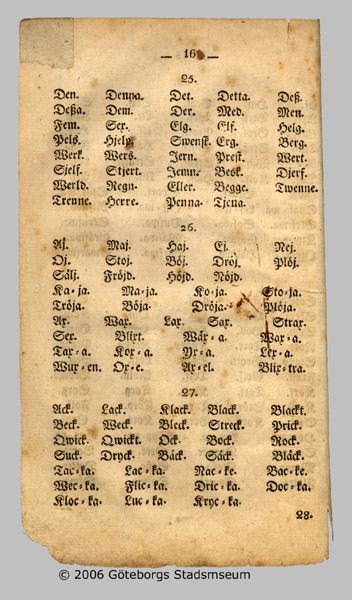 — 16 —
25.
Den. Denna. Det. Detta. Deß.
Deßa. Dem. Der. Med. Men.
Fem. Sex. Elg. Elf. Helg.
Pels. Hjelp. Swensk. Erg. Berg.
Werk. Wers. Jern. Prest. Wert.
Sjelf. Stjert. Jemn. Besk. Djerf.
Werld. Regn. Eller. Begge. Twenne.
Trenne. Herre. Penna. Tjena.
26.
Aj. Maj. Haj. Ej. Nej.
Oj. Stoj. Böj. Dröj. Plöj.
Sälj. Fröjd. Höjd. Nöjd.
Ka-ja. Ma-ja. Ko-ja. Sto-ja.
Tröja. Böja. Dröja. Plöja.
Ax. Wax. Lax. Sax. Strax.
Sex. Blixt. Wäx-a. Wax-a.
Tax-a. Kox-a. Yx-a. Lex-a.
Wux-en. Ox-e. Ax-el. Blix-tra.
27.
Ack. Lack. Klack. Black. Blackt.
Beck. Weck. Bleck. Streck. Prick.
Qwick. Qwickt. Ock. Bock. Rock.
Suck. Dryck. Bäck. Säck. Bläck.
Tac-ka. Lac-ka. Nac-ke. Bac-ke.
Wec-ka. Flic-ka. Dric-ka. Doc-ka.
Kloc-ka. Luc-ka. Kryc-ka.
28.
© 2006 Göteborgs Stadsmseum